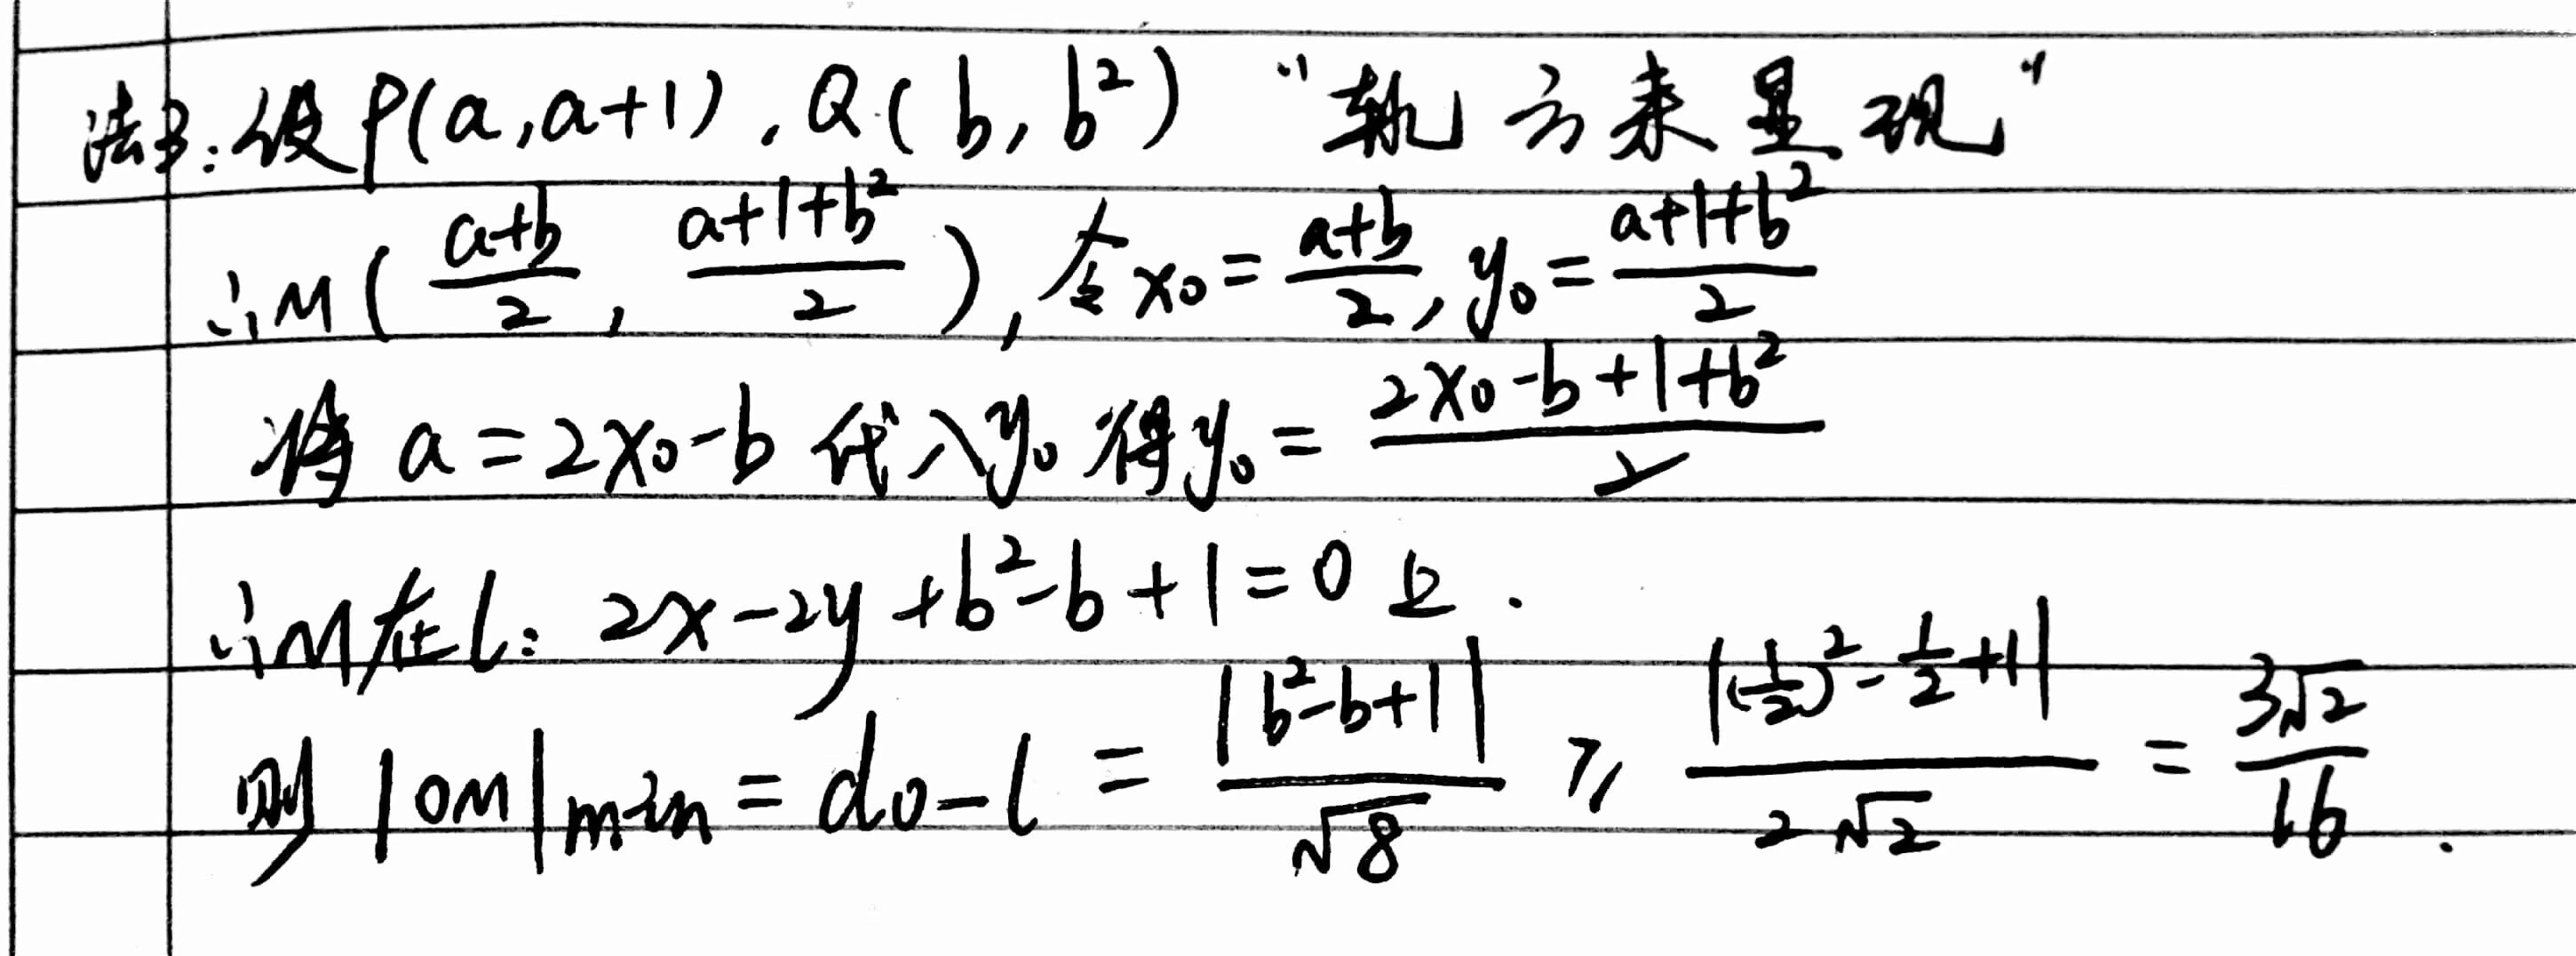 法3:设P(a,a+1),Q(b,b²) "轨方来显现"
∴M(\frac{a+b}{2},\frac{a+1+b²}{2}),令x₀=\frac{a+b}{2},y₀=\frac{a+1+b²}{2}
将a=2x₀-b代入y₀得y₀=\frac{2x₀-b+1+b²}{2}
∴M在l:2x-2y+b²-b+1=0上.
则|OM|min=d₀-l=\frac{|b²-b+1|}{√8}≥\frac{|(\frac{1}{2})²-\frac{1}{2}+1|}{2√2}=\frac{3√2}{16}.